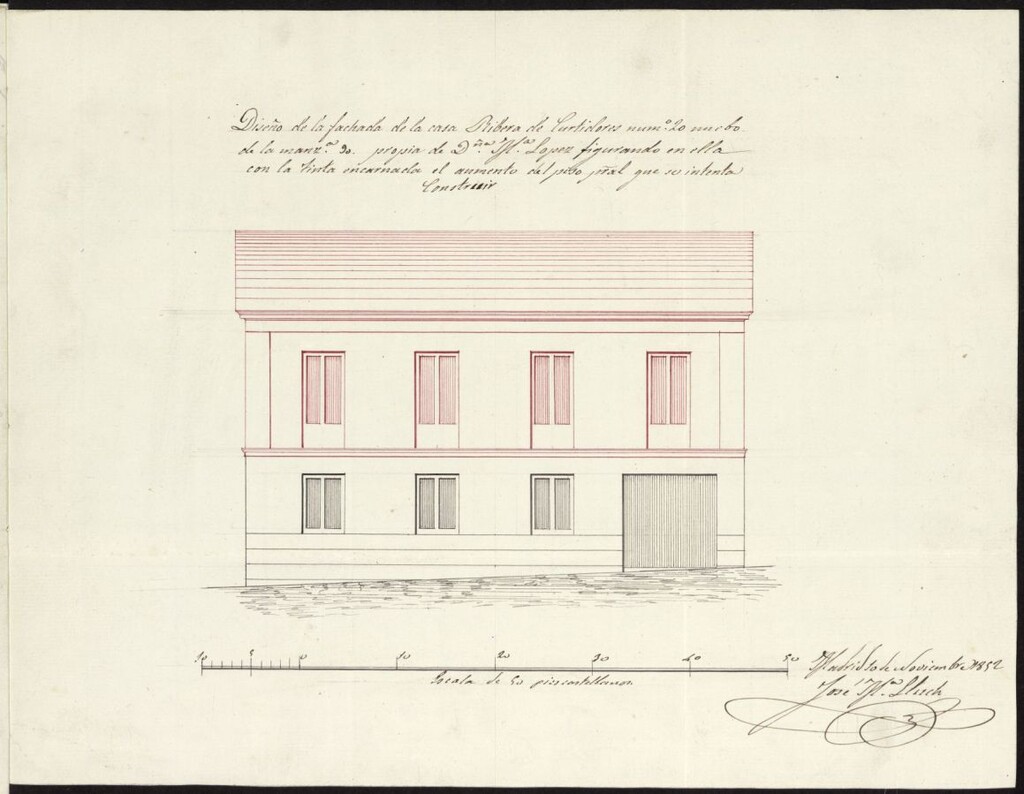 Diseño de la fachada de la casa Ribera de Curtidores num.º 20 nuebo
de la manz.ª 90. propia de D.ña M.ª Lopez figurando en ella
con la tinta encarnada el aumento del piso pral que se intenta
Construir
10 5 0 10 20 30 40 50
Escala de 50 pies castellanos
Madrid de Noviembre 1852
José M.ª Lluch